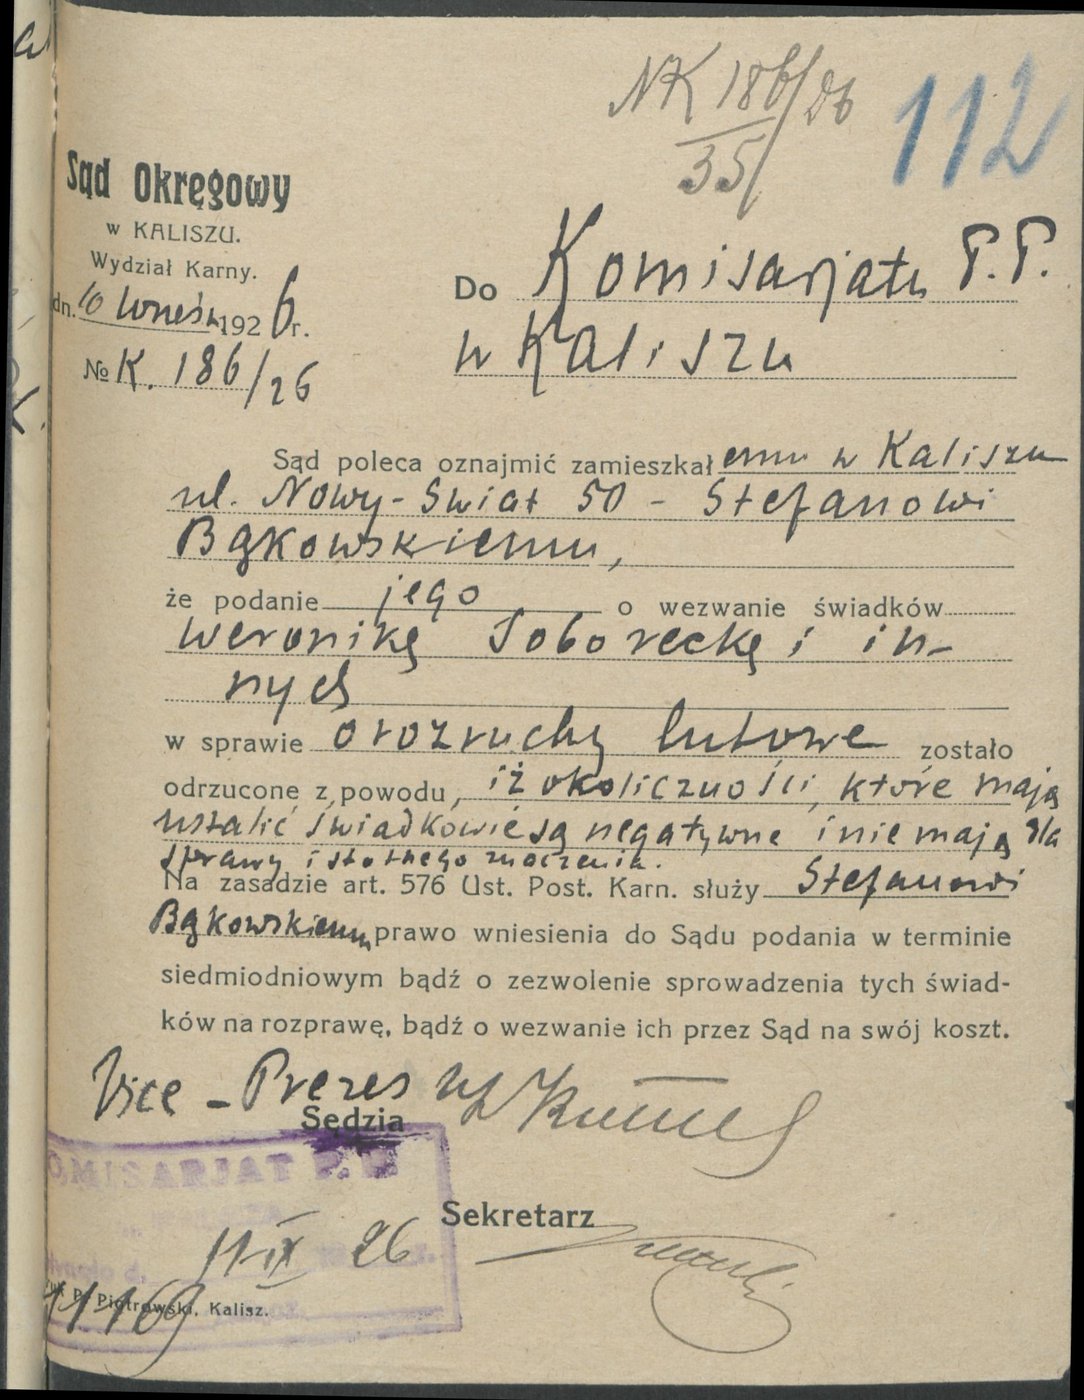 NK 186/26
35
112
Sąd Okręgowy
w KALISZU.
Wydział Karny.
dn. 10 wrześ. 1926 r.
№ K. 186/26
Do Komisarjatu P.P.
w Kaliszu
Sąd poleca oznajmić zamieszkałemu w Kaliszu
ul. Nowy-Świat 50 - Stefanowi
Bąkowskiemu,
że podanie jego o wezwanie świadków
Weronikę Soborecką i in-
nych
w sprawie o rozruchy lutowe zostało
odrzucone z powodu, iż okoliczności, które mają
ustalić świadkowie są negatywne i nie mają dla
sprawy istotnego znaczenia.
Na zasadzie art. 576 Ust. Post. Karn. służy Stefanowi
Bąkowskiemu prawo wniesienia do Sądu podania w terminie
siedmiodniowym bądź o zezwolenie sprowadzenia tych świad-
ków na rozprawę, bądź o wezwanie ich przez Sąd na swój koszt.
Vice - Prezes
Sędzia
KOMISARJAT P.P.
Sekretarz
11 IX 26
P. Piotrowski, Kalisz.